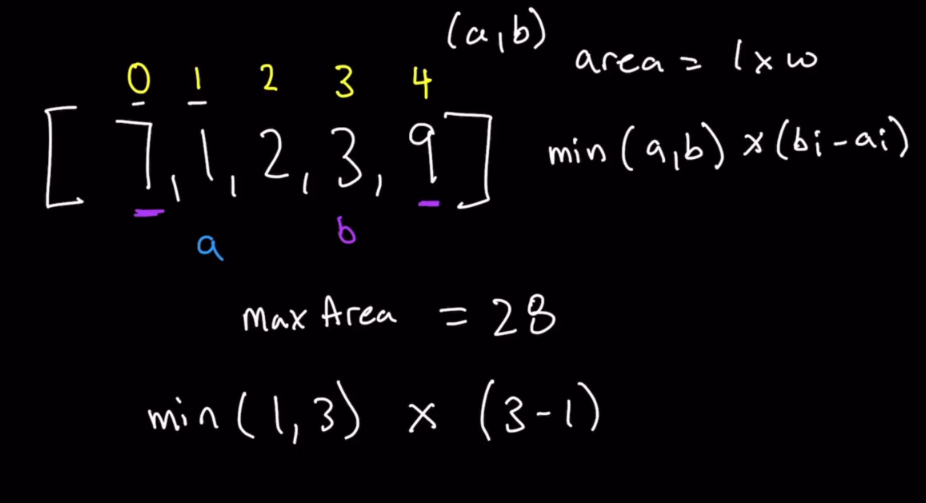 (a,b)
area = l x w
0 1 2 3 4
[7,1,2,3,9]
min(a,b) x (bi-ai)
a b
max Area = 28
min(1,3) x (3-1)